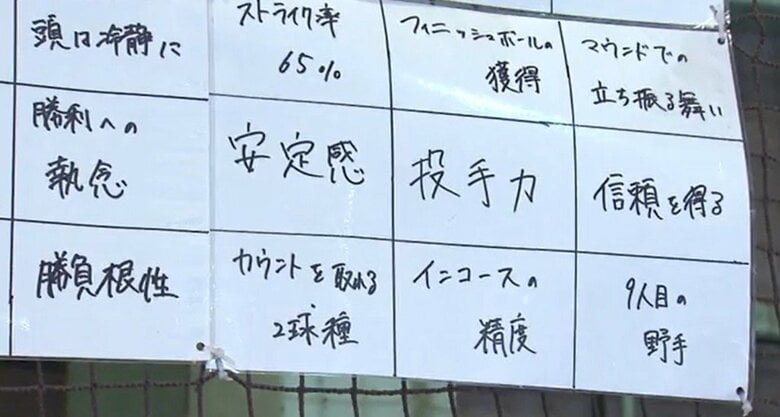 頭は冷静に
ストライク率
65%
フィニッシュボールの
獲得
マウンドでの
立ち振る舞い
勝利への
執念
安定感
投手力
信頼を得る
勝負根性
カウントを取れる
2球種
インコースの
精度
9人目の
野手